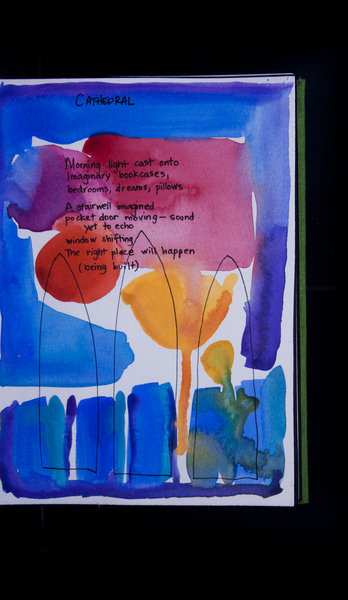 CATHEDRAL
Morning light cast onto
imaginary bookcases,
bedrooms, dreams, pillows
A stairwell imagined
pocket door moving — sound
yet to echo
window shifting
The right place will happen
(being built)